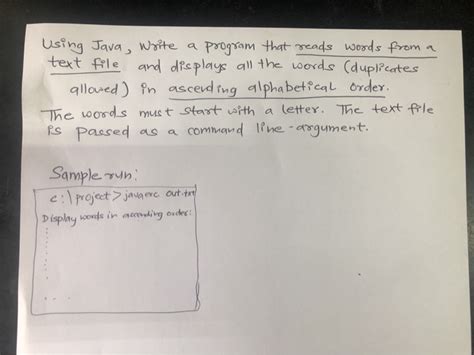 Using Java, Write a program that reads words from a
text file and displays all the words (duplicates
allowed) in ascending alphabetical order.
The words must start with a letter. The text file
is passed as a command line-argument.
Sample run:
c:\project> out.txt
Display words in order: